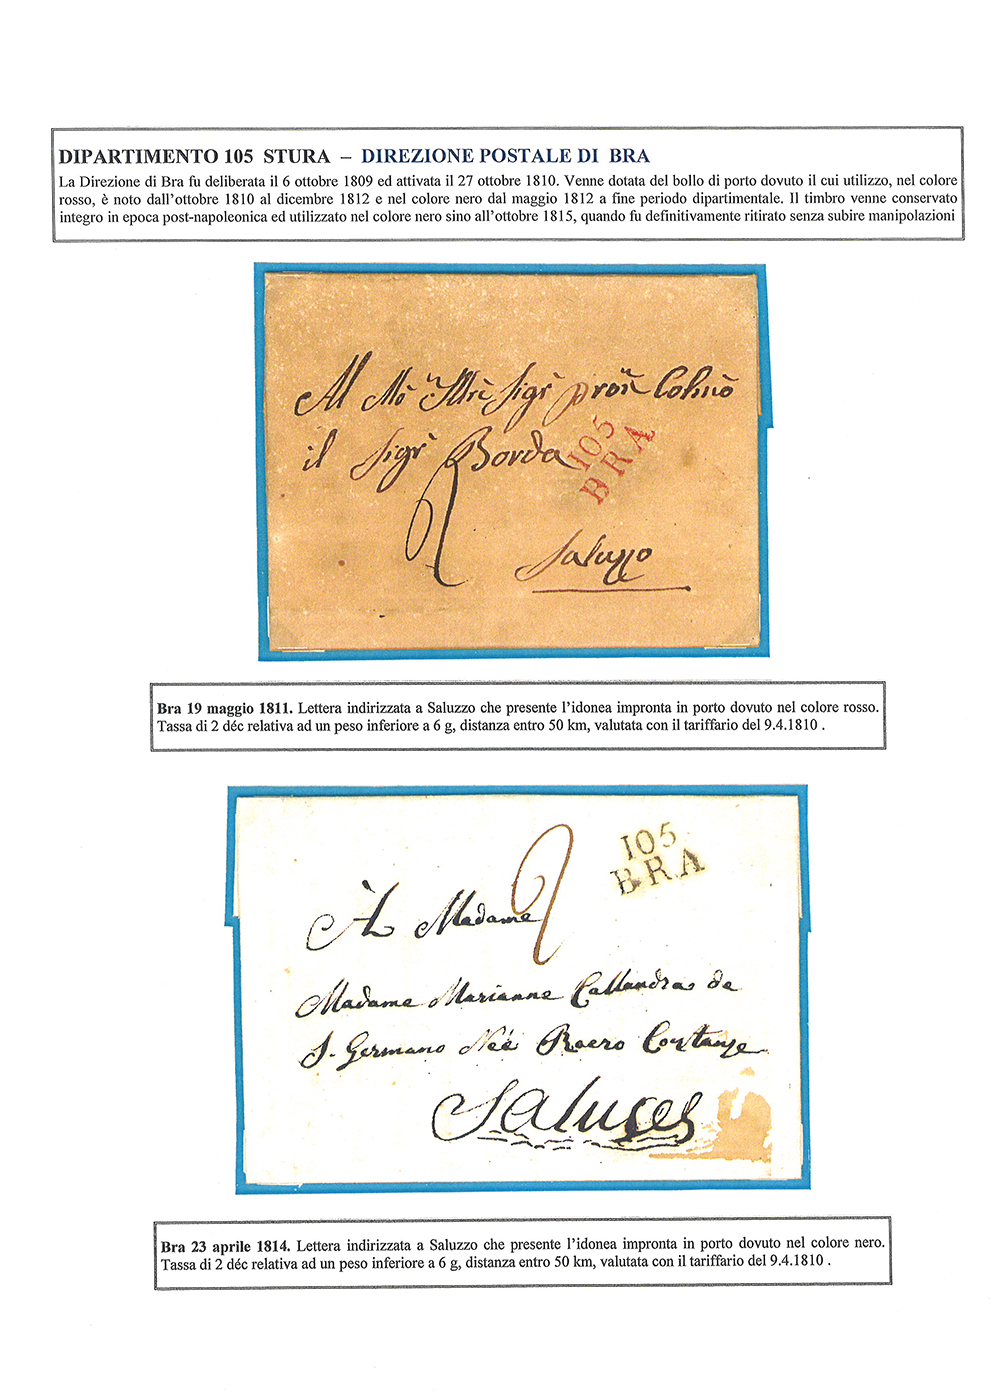 DIPARTIMENTO 105 STURA – DIREZIONE POSTALE DI BRA
La Direzione di Bra fu deliberata il 6 ottobre 1809 ed attivata il 27 ottobre 1810. Venne dotata del bollo di porto dovuto il cui utilizzo, nel colore
rosso, è noto dall'ottobre 1810 al dicembre 1812 e nel colore nero dal maggio 1812 a fine periodo dipartimentale. Il timbro venne conservato
integro in epoca post-napoleonica ed utilizzato nel colore nero sino all'ottobre 1815, quando fu definitivamente ritirato senza subire manipolazioni
Al Mo Sigr
il Sigr Borda
105
BRA
2
Saluzzo
Bra 19 maggio 1811. Lettera indirizzata a Saluzzo che presente l'idonea impronta in porto dovuto nel colore rosso.
Tassa di 2 déc relativa ad un peso inferiore a 6 g, distanza entro 50 km, valutata con il tariffario del 9.4.1810 .
2
105
BRA
À Madame
Madame Marianne Callandra de
S. Germano Née Roero
Saluces
Bra 23 aprile 1814. Lettera indirizzata a Saluzzo che presente l'idonea impronta in porto dovuto nel colore nero.
Tassa di 2 déc relativa ad un peso inferiore a 6 g, distanza entro 50 km, valutata con il tariffario del 9.4.1810 .